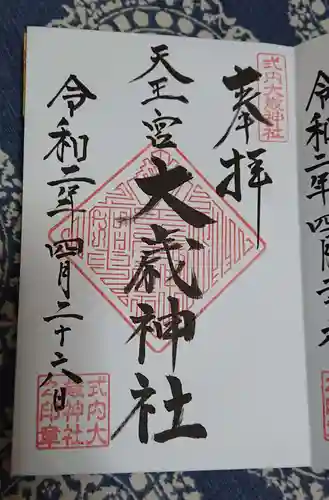 奉拝
式内大歳神社
天王宮
大歳神社
令和二年四月二十六日
式内大
歳神社
之印章
令和二年四月二